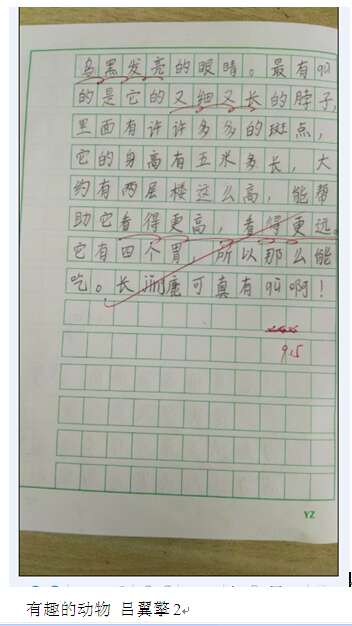 乌黑发亮的眼睛。最有叫
的是它的又细又长的脖子,
里面有许许多多的斑点,
它的身高有五米多长,大
约有两层楼这么高,能帮
助它看得更高,看得更远。
它有四个胃,所以那么能
吃。长鹿可真有叫啊!
9.5
YZ
有趣的动物 吕翼擎2